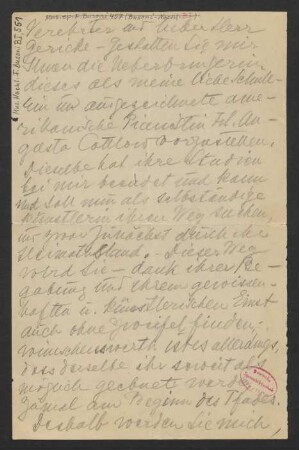 Mus. Nachl. F. Busoni B I 561
Verehrter und lieber Herr
Gericke – Gestatten Sie mir
Ihnen die Ueberbringerin
dieses als meine liebe Schüle-
rin und ausgezeichnete ame-
rikanische Pianistin Frl. Au-
gusta Cottlow vorzustellen.
Dieselbe hat ihre Studien
bei mir beendet und kann
und soll nun als selbständige
Künstlerin ihren Weg suchen,
und zwar zunächst durch ihr
Heimatsland. – Dieser Weg
wird sie – dank ihrer Be-
gabung und ihrem gewissen-
haften u. künstlerischen Ernst
auch ohne Zweifel finden;
wünschenswerth ist es allerdings,
dass derselbe ihr soweit als
möglich geebnet werde,
zumal am Beginn des Pfades.
Deshalb werden Sie mich,